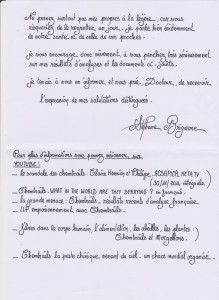 Ne prenez surtout pas mes propos à la légère... car vous
risqueriez de le regretter, un jour... je parle bien évidemment
de votre santé et de celle de vos proches.
Je vous encourage donc vivement, à vous pencher très sérieusement
sur mes résultats d'analyses et les documents ci-joints.
Je tenais à vous en informer, et vous prie, Docteur, de recevoir,
l'expression de mes salutations distinguées.
Stéphane Brigeon
Pour plus d'informations vous pouvez visionner sur
YOUTUBE :
- le scandale des chemtrails. Céline Hennin et Philippe, ACSEIPICA, META TV
(30/11/2014, intégrale)
- Chemtrails. WHAT IN THE WORLD ARE THEY SPRAYING ? en français.
- la grande menace : Chemtrails, résultats records d'analyse française.
- empoisonnement avec Chemtrails.
- fibres dans le corps humain, l'alimentation, les abeilles, les plantes :)
Chemtrails et Morgellons.
- Chemtrails la piste chimique, savant du ciel. un chaos mondial organisé.